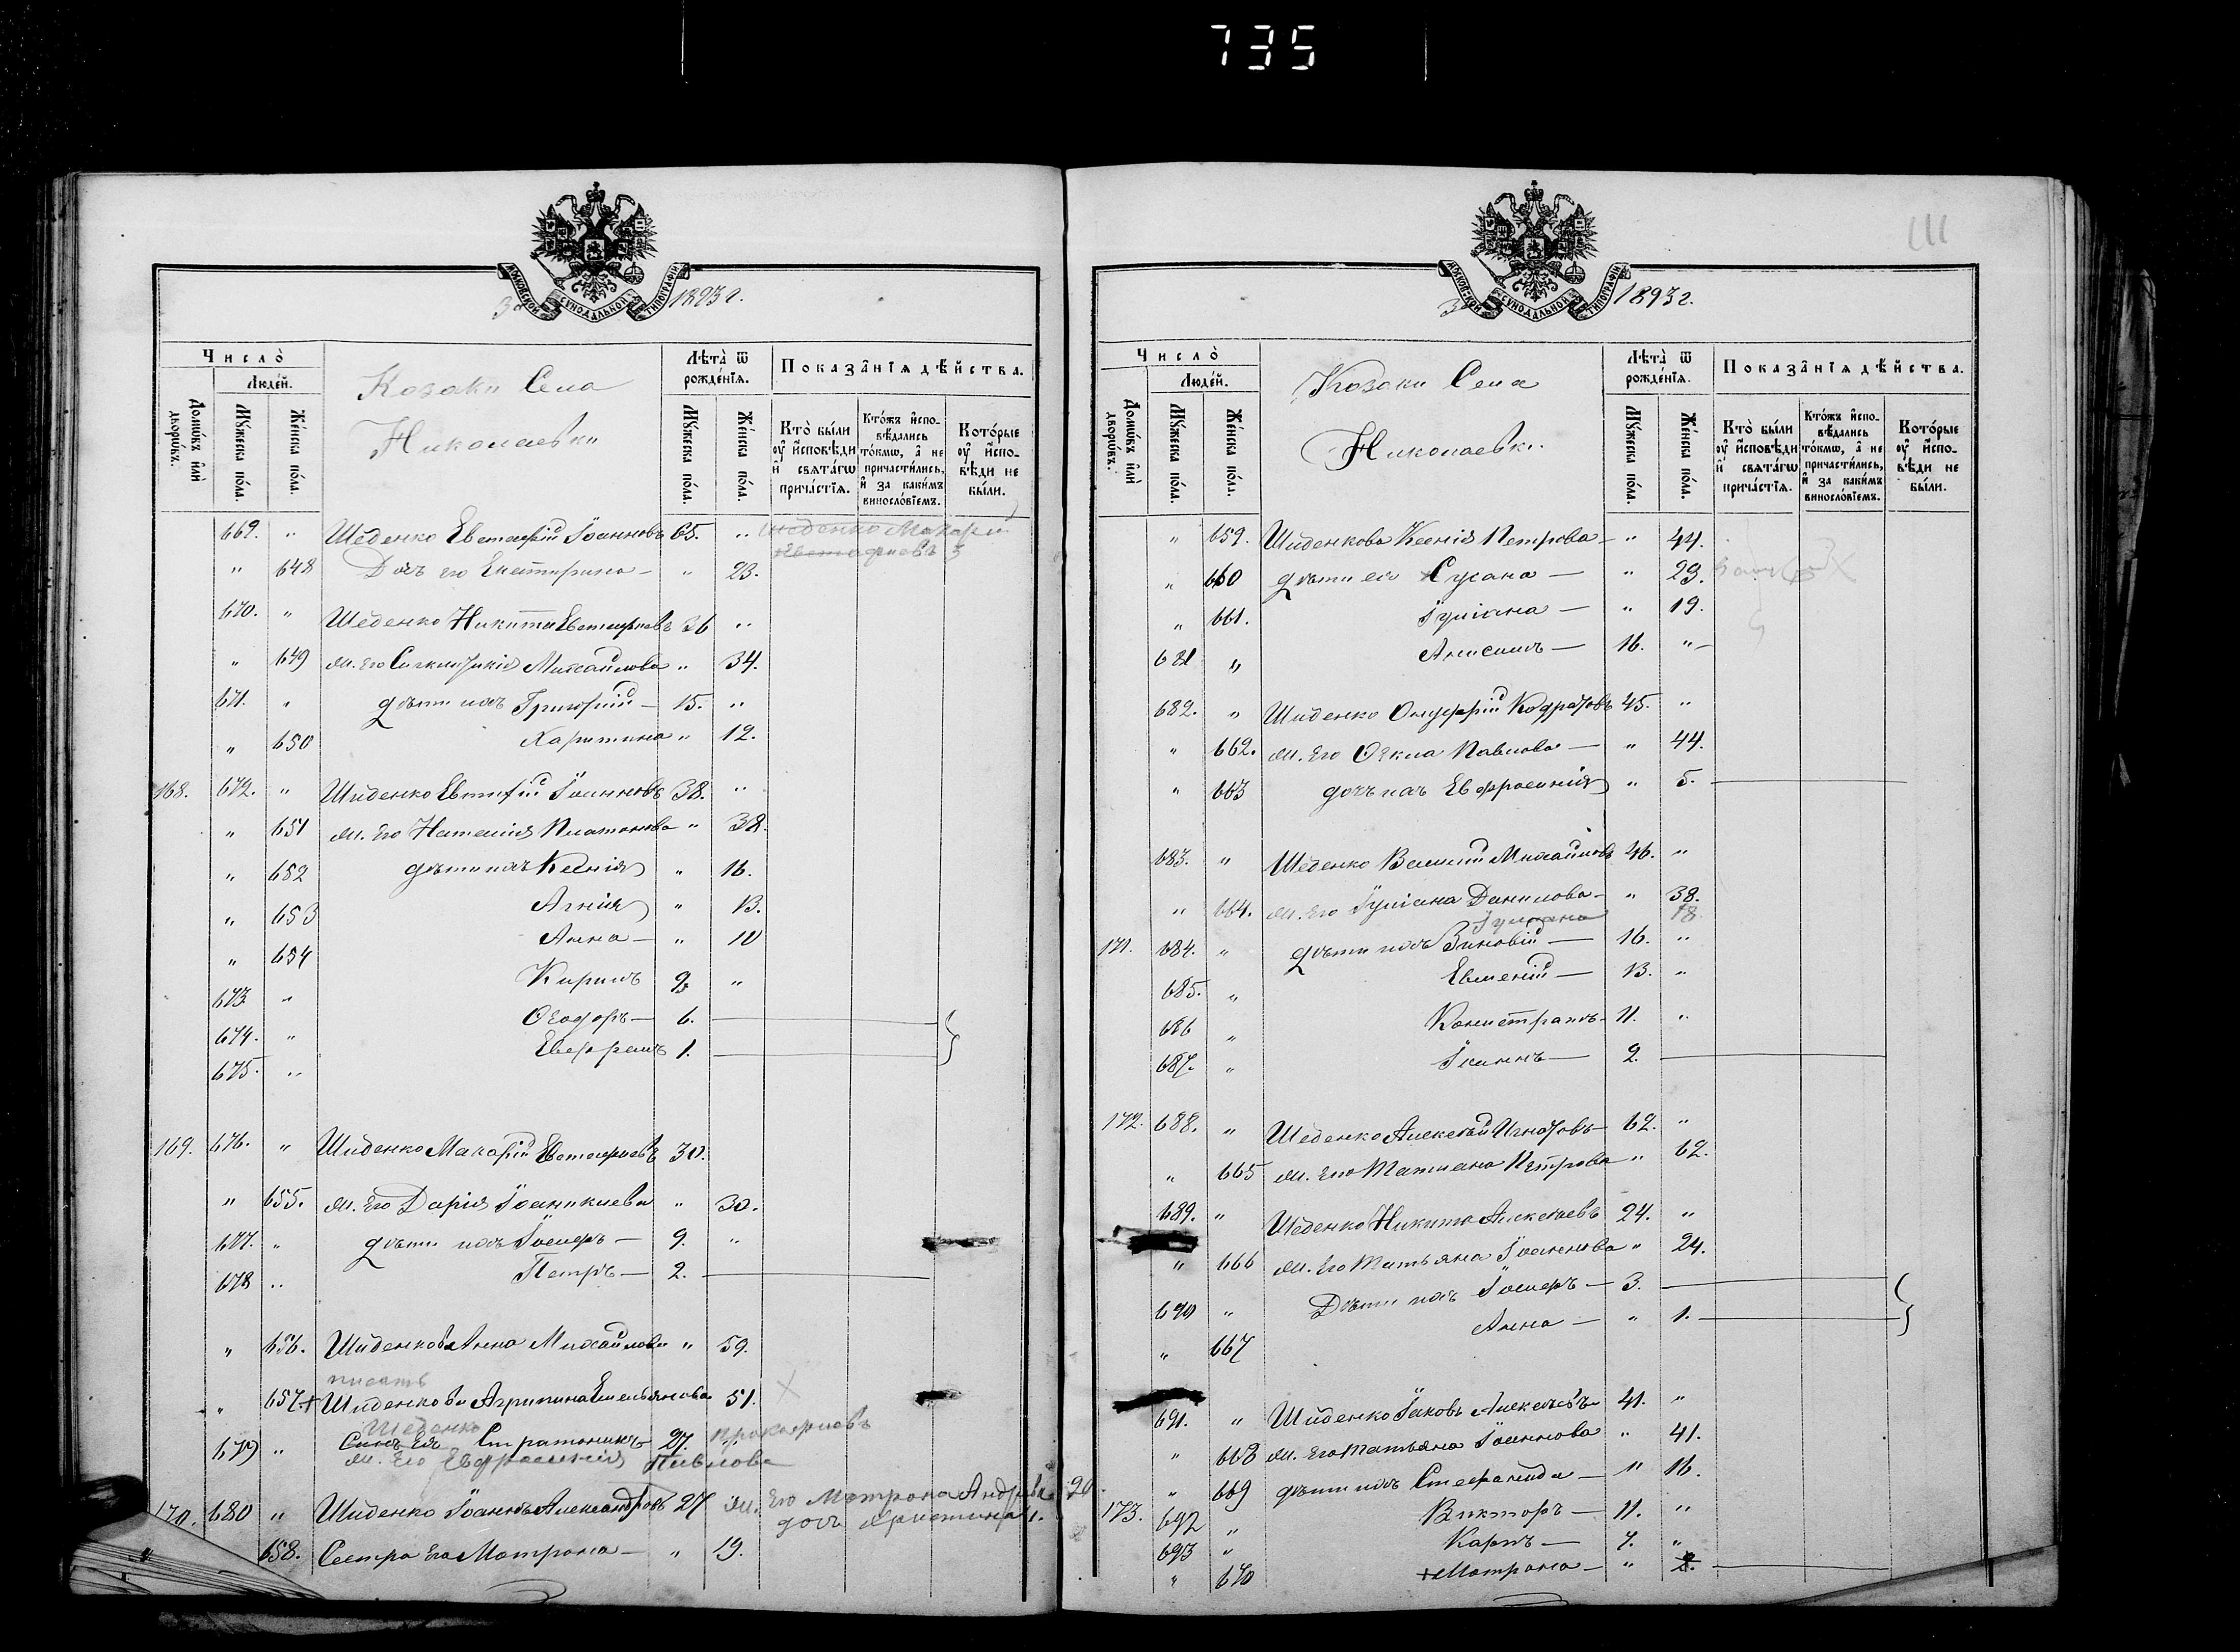 735
МОСКОВСКОЙ СѴНОДАЛЬНОЙ ТИПОГРАФІИ
За 1893 г.
Число̀
Людей.
Домѡвъ или дворѡвъ.
Мꙋжеска пола.
Женска пола.
Козаки Села
Николаевки
Лѣта ѿ рожденїѧ.
Мꙋжеска пола.
Женска пола.
Показанїѧ дѣйства.
Кто были оу исповѣди и свѧтагѡ причастїѧ.
Ктожъ исповѣдались токмѡ, а не причастились, и за какимъ винословїемъ.
Которые оу исповѣди не были.
669. " Шеденко Евстафій Іоанновъ 65. " Шеденко Макарій
Евстафіевъ 3
" 648 Дочь его Екатерина — " 23.
670. " Шеденко Никита Евстафіевъ 36 "
" 649 Ж. его Михайлова " 34.
671. " дѣти ихъ Григорій — 15. "
" 650 Харитина " 12.
168. 672. " Шиденко Евтифій Іоанновъ 38. "
" 651 Ж. его Наталія Платонова " 38.
" 652 дѣти ихъ Ксенія " 16.
" 653 Агнія " 13.
" 654 Анна — " 10
673 " Кирилъ 9 "
674. " Ѳеодоръ — 6.
675. " Евфремъ 1.
169. 676. " Шиденко Макарій Евстафіевъ 30.
" 655. Ж. его Дарія Іоанникиева " 30.
677. " дѣти ихъ Іосифъ — 9. "
678 " Петръ — 2.
" 656. Шиденкова Анна Михайлова " 59.
писать
" 657. + Шиденкова Агрипина Емельянова 51. X
Шеденко
679 " Сынъ ея Стратоникъ — 27. Прокофіевъ
Ж. его Евфросинія Павлова
170. 680 " Шиденко Іоаннъ Александровъ 27 Ж. его Матрона Андреева 20.
дочь Христина 1.
" 658. Сестра его Матрона — " 19.
111
МОСКОВСКОЙ СѴНОДАЛЬНОЙ ТИПОГРАФІИ
За 1893 г.
Число̀
Людей.
Домѡвъ или дворѡвъ.
Мꙋжеска пола.
Женска пола.
Козаки Села
Николаевки
Лѣта ѿ рожденїѧ.
Мꙋжеска пола.
Женска пола.
Показанїѧ дѣйства.
Кто были оу исповѣди и свѧтагѡ причастїѧ.
Ктожъ исповѣдались токмѡ, а не причастились, и за какимъ винословїемъ.
Которые оу исповѣди не были.
" 659. Шиденкова Ксенія Петрова — " 44.
" 660 дѣти ея Сусана — " 23.
" 661. Іуліана — " 19.
681 " Анисимъ — 16. "
682. " Шиденко Онуфрій Кодратовъ 45. "
" 662. Ж. его Ѳекла Павлова — " 44.
" 663 дочь ихъ Евфросинія " 5.
683. " Шеденко Василій Михайловъ 46. "
" 664. Ж. его Іуліана Данилова — " 38.
Іуліана 18
171. 684. " дѣти ихъ Зиновій — 16. "
685. " Евменій — 13. "
686 " Калистратъ — 11. "
687. " Іоаннъ — 2.
172. 688. " Шеденко Алексѣй Игнатовъ — 62. "
" 665 Ж. его Татиана Петрова " 62.
689. " Шеденко Никита Алексѣевъ 24. "
" 666 Ж. его Татьяна Іоаннова " 24.
690 " Дѣти ихъ Іосифъ — 3.
" 667 Анна — " 1.
691. " Шиденко Іаковъ Алексѣевъ 41. "
" 668 Ж. его Татьяна Іоаннова " 41.
" 669 дѣти ихъ Стефанида — " 16.
173. 692 " Викторъ — 11. "
693 " Карпъ — 7. "
" 670 + Матрона — "